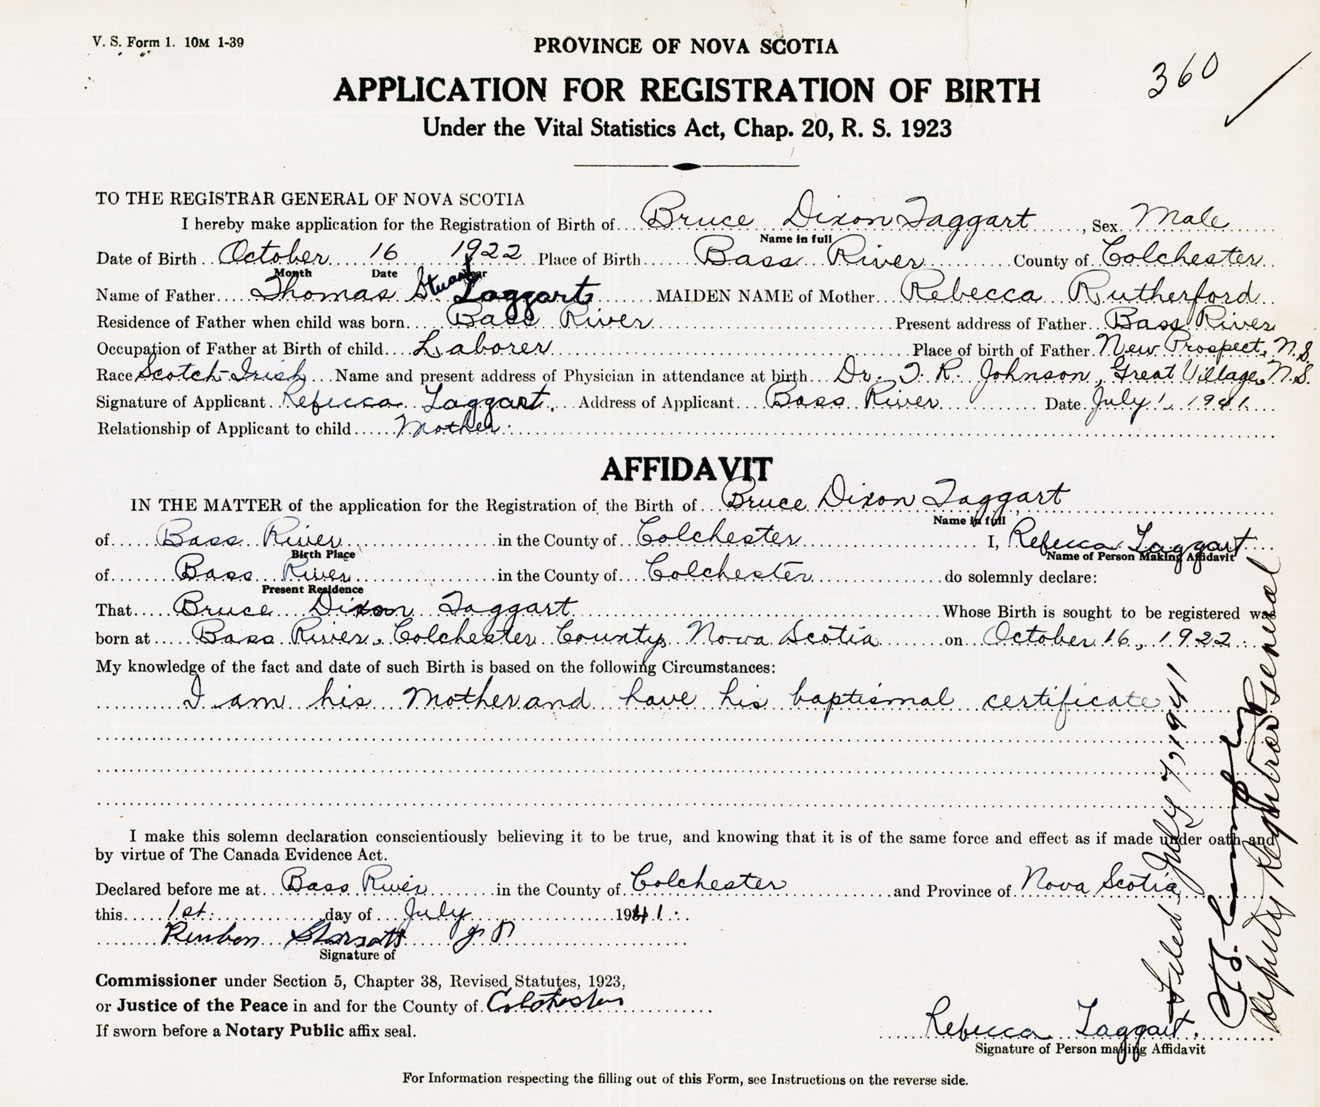 V. S. Form 1. 10M 1-39
PROVINCE OF NOVA SCOTIA
360
APPLICATION FOR REGISTRATION OF BIRTH
Under the Vital Statistics Act, Chap. 20, R. S. 1923
TO THE REGISTRAR GENERAL OF NOVA SCOTIA
I hereby make application for the Registration of Birth of Bruce Dixon Taggart, Sex Male
Name in full
Date of Birth October 16 1922 Place of Birth Bass River County of Colchester
Month Date Year
Name of Father Thomas Stuart Taggart MAIDEN NAME of Mother Rebecca Rutherford
Residence of Father when child was born Bass River Present address of Father Bass River
Occupation of Father at Birth of child Laborer Place of birth of Father New Prospect, N.S.
Race Scotch-Irish Name and present address of Physician in attendance at birth Dr. T. R. Johnson, Great Village, N.S.
Signature of Applicant Rebecca Taggart. Address of Applicant Bass River Date July 1, 1941
Relationship of Applicant to child Mother
AFFIDAVIT
IN THE MATTER of the application for the Registration of the Birth of Bruce Dixon Taggart
Name in full
of Bass River in the County of Colchester I, Rebecca Taggart
Birth Place Name of Person Making Affidavit
of Bass River in the County of Colchester do solemnly declare:
Present Residence
That Bruce Dixon Taggart Whose Birth is sought to be registered was
born at Bass River, Colchester County, Nova Scotia on October 16, 1922
My knowledge of the fact and date of such Birth is based on the following Circumstances:
I am his Mother and have his baptismal certificate
I make this solemn declaration conscientiously believing it to be true, and knowing that it is of the same force and effect as if made under oath and
by virtue of The Canada Evidence Act.
Declared before me at Bass River in the County of Colchester and Province of Nova Scotia
this 1st. day of July 1941
Reuben J P
Signature of
Commissioner under Section 5, Chapter 38, Revised Statutes, 1923,
or Justice of the Peace in and for the County of Colchester
If sworn before a Notary Public affix seal.
Rebecca Taggart.
Signature of Person making Affidavit
For Information respecting the filling out of this Form, see Instructions on the reverse side.
Filed July 7, 1941
Deputy Registrar General